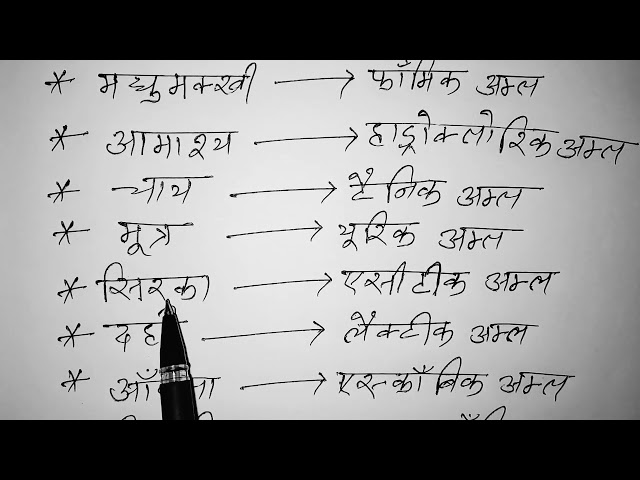 * मधुमक्खी → फॉर्मिक अम्ल
* आमाश्य → हाड्रोक्लोरिक अम्ल
* चाय → टैनिक अम्ल
* मूत्र → यूरिक अम्ल
* सिरका → एसीटीक अम्ल
* → लैक्टीक अम्ल
* → एस्कॉबिक अम्ल